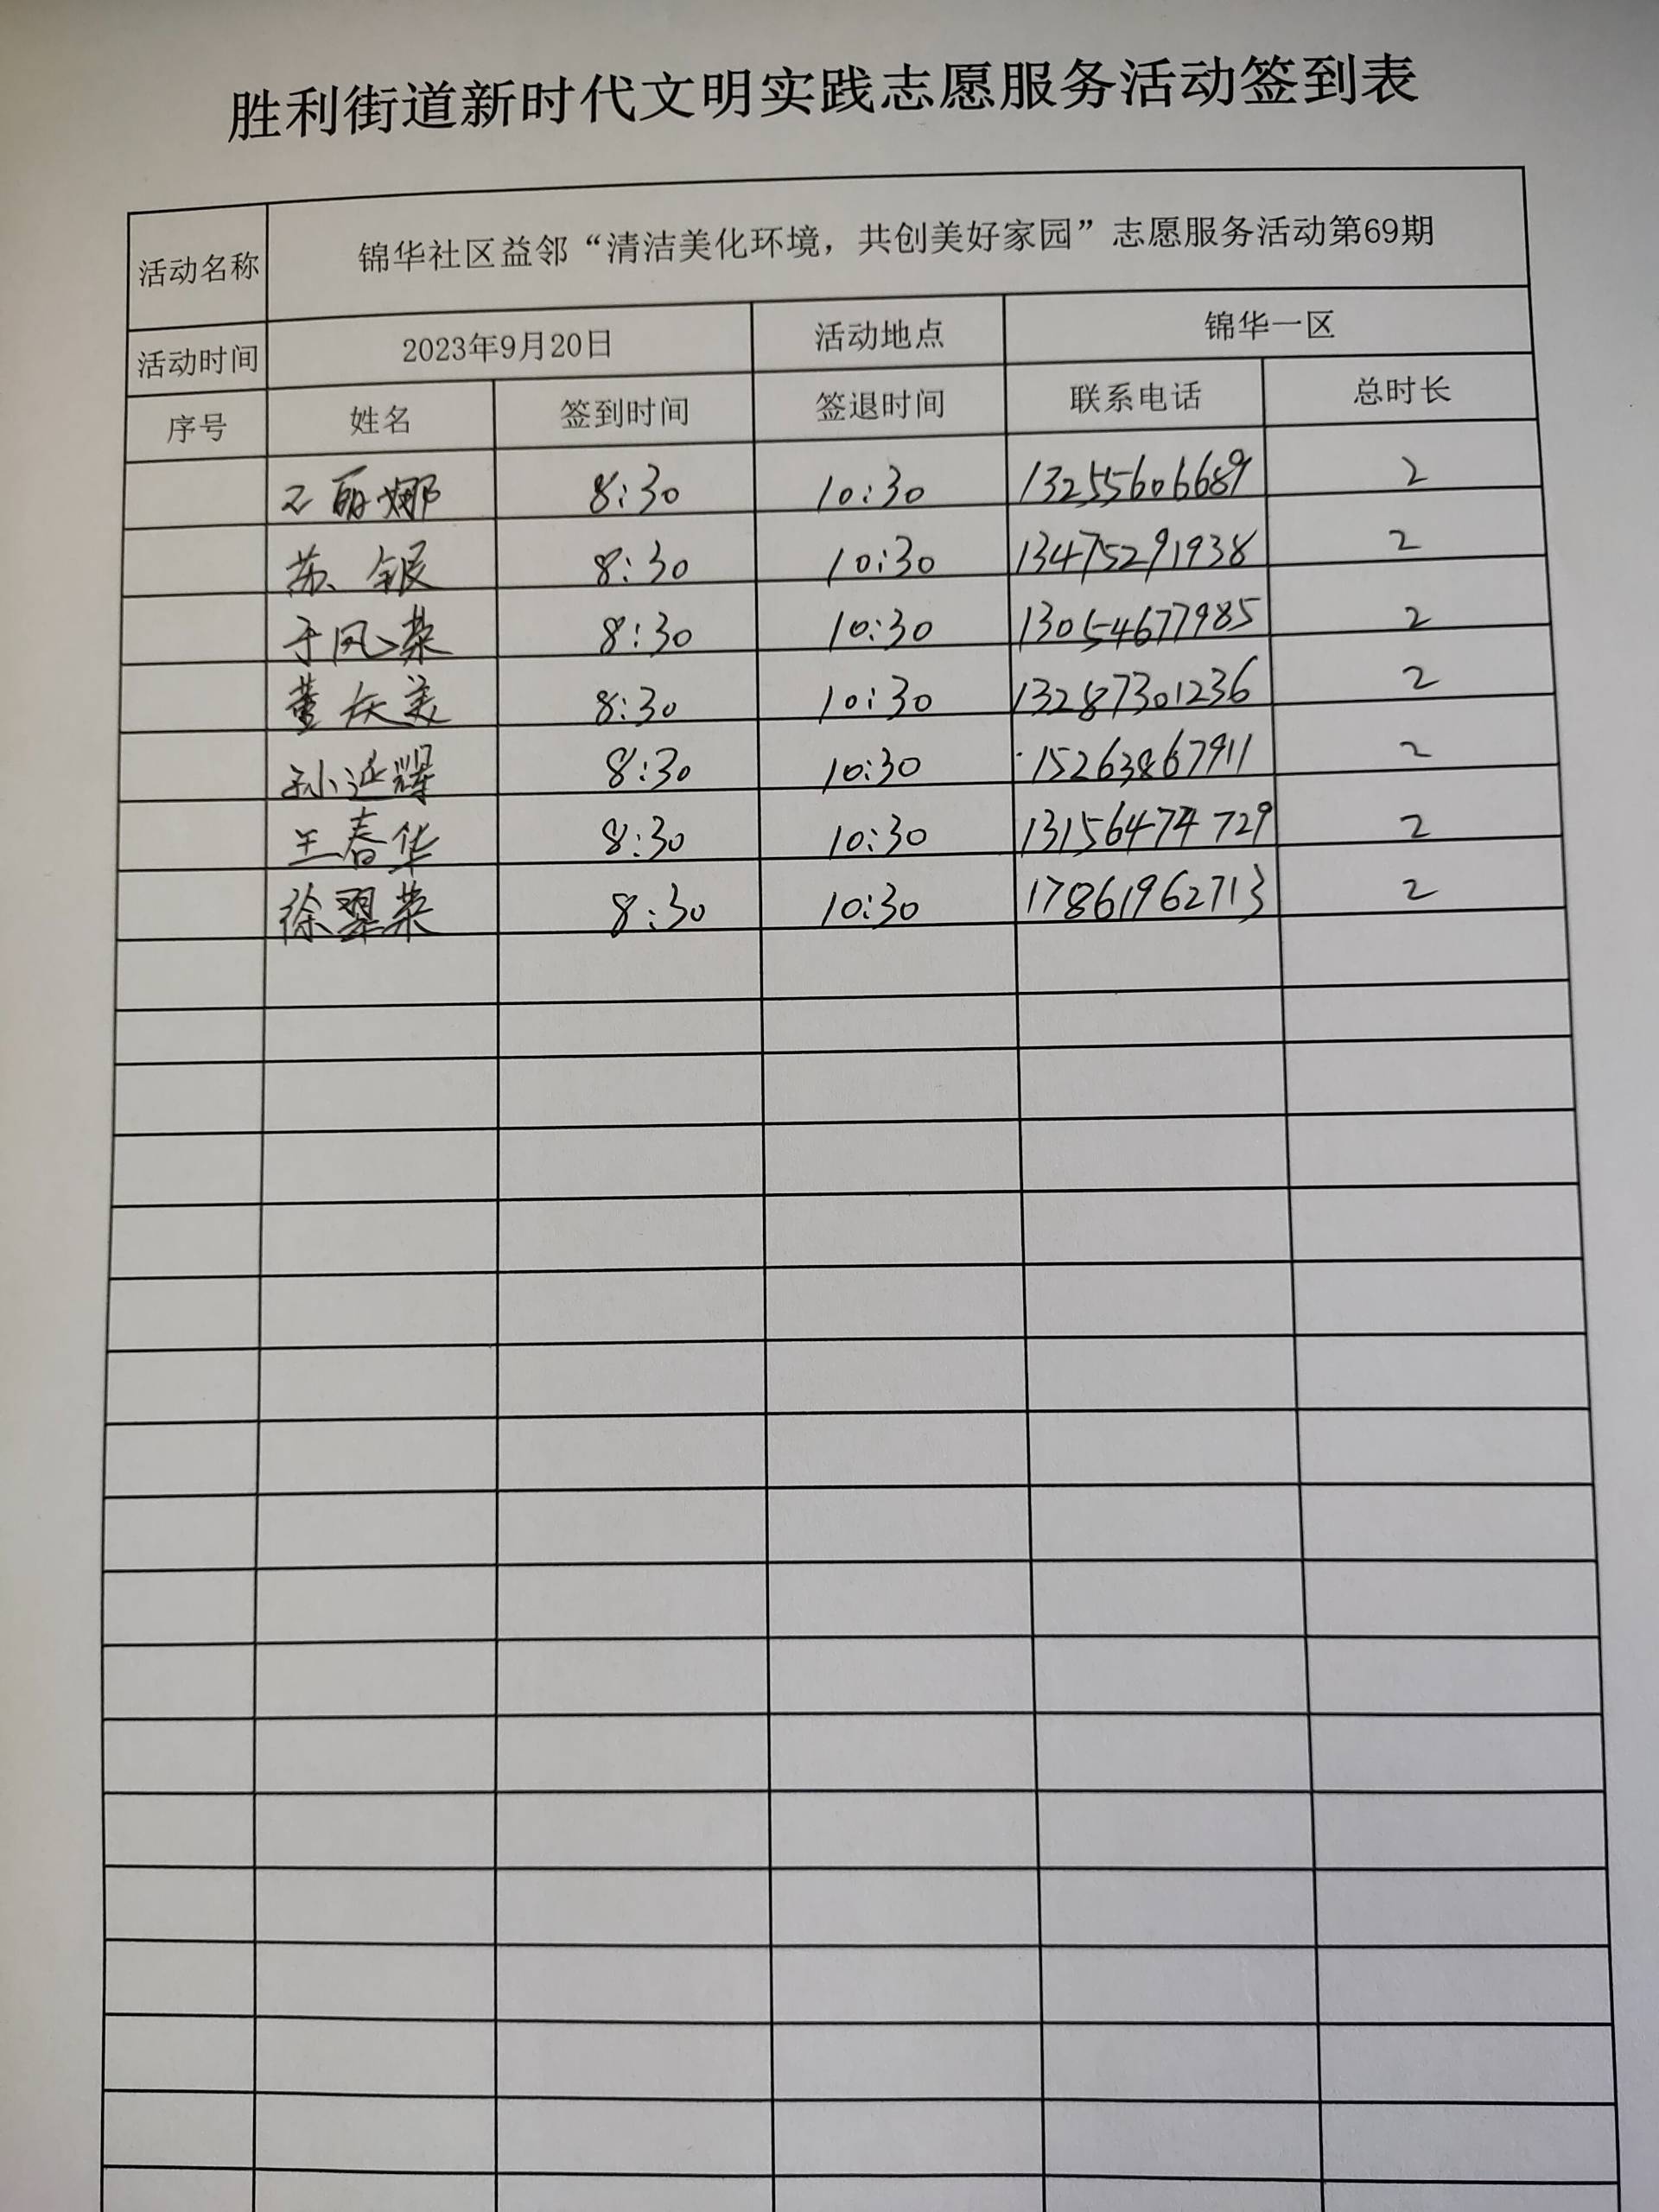 胜利街道新时代文明实践志愿服务活动签到表
活动名称 锦华社区益邻“清洁美化环境，共创美好家园”志愿服务活动第69期
活动时间 2023年9月20日 活动地点 锦华一区
序号 姓名 签到时间 签退时间 联系电话 总时长
丽娜 8:30 10:30 13255606689 2
苏银 8:30 10:30 13475291938 2
于风荣 8:30 10:30 13054677985 2
董庆美 8:30 10:30 13287301236 2
孙延辉 8:30 10:30 15263867911 2
王春华 8:30 10:30 13156474729 2
徐翠荣 8:30 10:30 17861962713 2